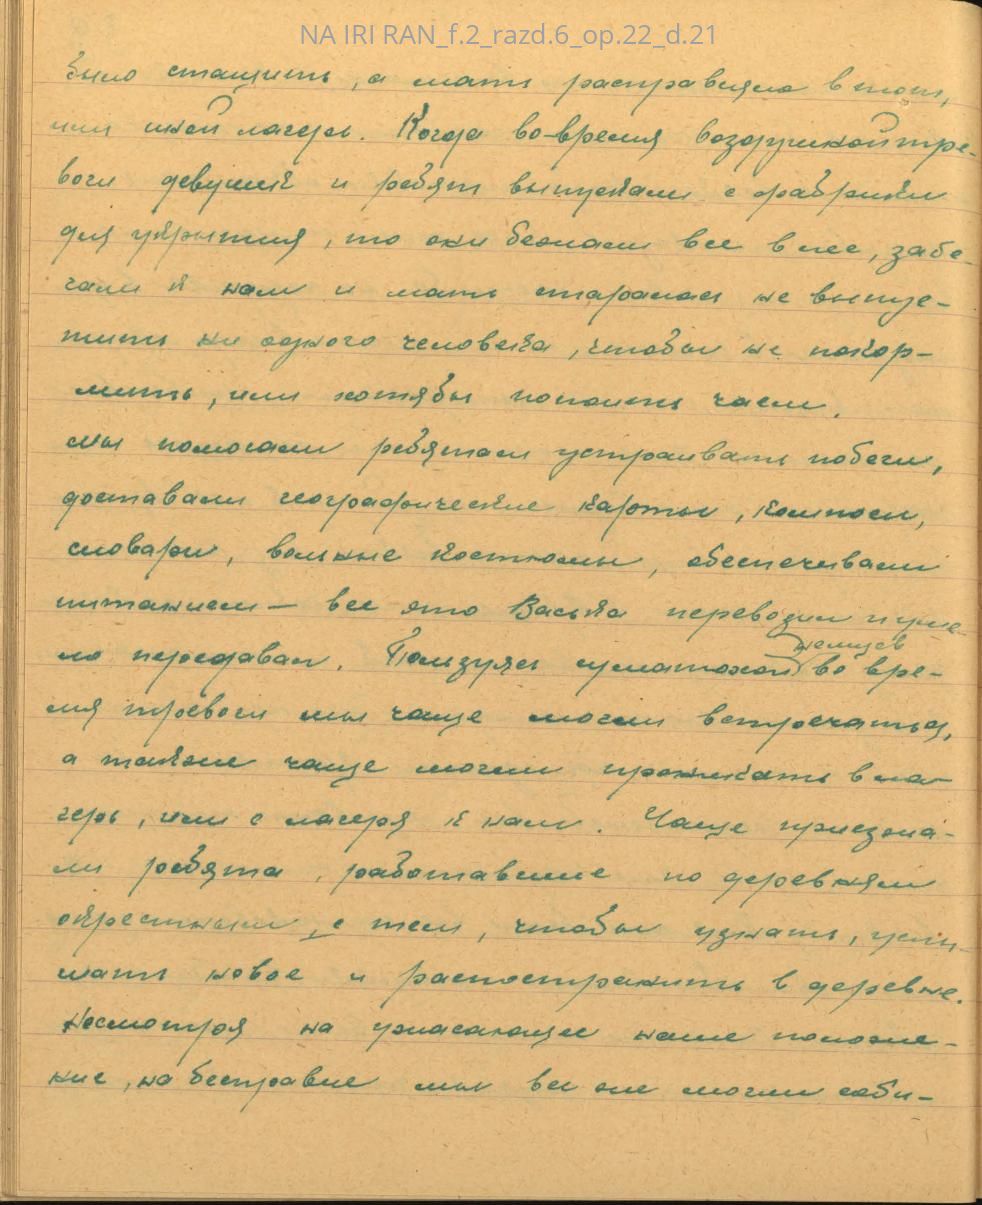 NA IRI RAN_f.2_razd.6_op.22_d.21
было стащить, а мать расправляла в тот,
или иной лагерь. Когда во-время воздушной тре-
воги девушек и ребят выпускали с фабрики
для укрытия, то они бежали все в лес, забе-
гали к нам и мать старалась не выпус-
тить ни одного человека, чтобы не покор-
мить, или хотябы попоить чаем.
Мы помогали ребятам устраивать побеги,
доставали географические карты, компасы,
словари, вольные костюмы, обеспечивали
питанием – все это Васька перевозил и уме-
ло передавал. Пользуясь суматохой немцев во вре-
мя тревоги мы чаще могли встречаться,
а также чаще могли проникать в ла-
герь, или с лагеря к нам. Чаще приезжа-
ли ребята, работавшие по деревням
окрестным, с тем, чтобы узнать, услы-
шать новое и распостранить в деревне.
Несмотря на ужасающее наше положе-
ние, на бесправие мы все же могли соби-